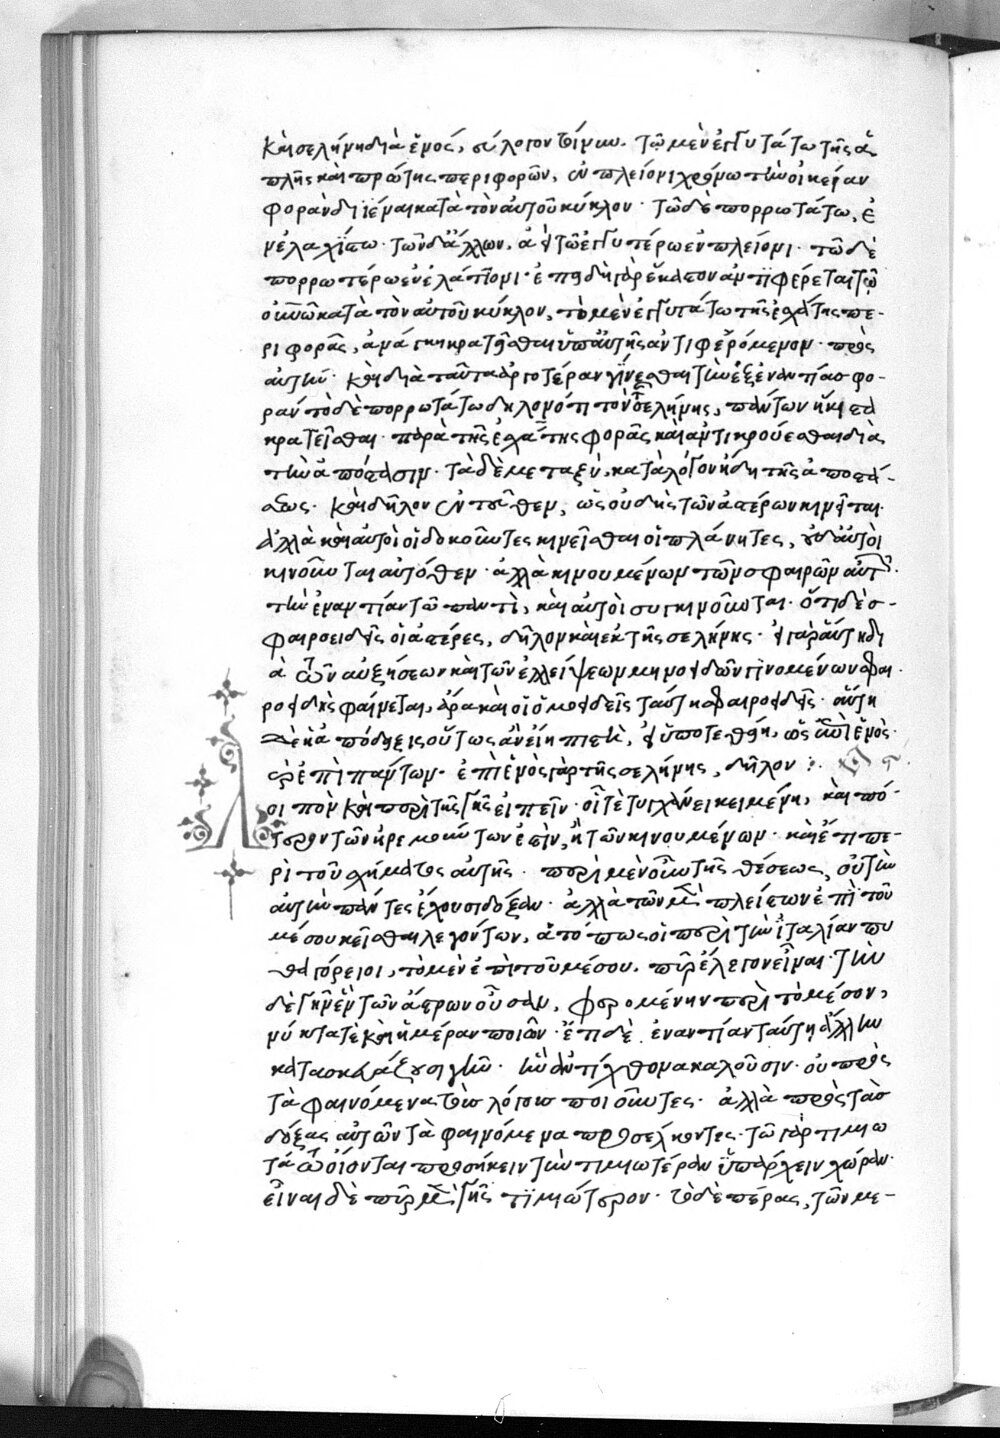 καὶ σελήνη διὰ ἑνός, εὔλογον γίνεσθαι. τῷ μὲν ἐγγυτάτω τῆς ἁ-
πλῆς καὶ πρώτης περιφορᾶς, ἐν πλείονι χρόνῳ τὴν οἰκείαν
φορὰν διϊέναι κατὰ τὸν αὐτοῦ κύκλον. τῷ δὲ πορρωτάτω, ἐ-
ν ἐλαχίστῳ. τῶν δ' ἄλλων, ἀεὶ τῷ ἐγγυτέρω ἐν πλείονι. τῷ δὲ
πορρωτέρω ἐν ἐλάττονι. ἐπειδὴ γὰρ ἕκαστον ἀντιφέρεται τῷ
οὐνῷ κατὰ τὸν αὐτοῦ κύκλον, τὸ μὲν ἐγγυτάτω τῆς ἐσχάτης πε-
ριφορᾶς, ἀνάγκη κρατεῖσθαι ὑπ' αὐτῆς ἀντιφερόμενον πρὸς
αὐτήν. καὶ διὰ ταῦτα ἀργοτέραν γίνεσθαι τὴν ἐξ ἐναντίας φο-
ράν τὸ δὲ πορρωτάτω δηλονότι τὸν τῆς σελήνης, πάντων ἥκιστα
κρατεῖσθαι παρὰ τῆς ἐσχάτης φορᾶς καὶ ἀντικρούεσθαι διὰ
τὴν ἀπόστασιν. τὰ δὲ μεταξύ, κατὰ λόγον ἤδη τῆς ἀποστά-
σεως. καὶ δῆλον ἐντεῦθεν, ὡς οὐδεὶς τῶν ἀστέρων κινεῖται.
ἀλλὰ καὶ αὐτοὶ οἱ δοκοῦντες κινεῖσθαι οἱ πλάνητες, οὐδ' αὐτοὶ
κινοῦνται αὐτόθεν. ἀλλὰ κινουμένων τῶν σφαιρῶν αὐτῶν.
τὴν ἐναντίαν τῷ παντὶ, καὶ αὐτοὶ συγκινοῦνται. ὅτι δὲ σ-
φαιροειδεῖς οἱ ἀστέρες, δῆλον καὶ ἐκ τῆς σελήνης. εἰ γὰρ αὕτη δι-
ὰ τῶν αὐξήσεων καὶ τῶν ἐλλείψεων μηνοειδῶν γινομένων σφαι-
ροειδὴς φαίνεται, ἄρα καὶ οἱ ὁμοειδεῖς ταύτῃ σφαιροειδεῖς. αὕτη
δὲ ἡ ἀπόδειξις οὕτως ἂν εἴη πιστὴ, εἰ ὑποτεθείη, ὡς ἐπὶ ἑνὸς
καὶ ἐπὶ πάντων. ἐπὶ ἑνὸς γὰρ τῆς σελήνης, δῆλον :.
Λοιπὸν καὶ περὶ τῆς γῆς εἰπεῖν. οἷ τὲ τυγχάνει κειμένη, καὶ πό-
τερον τῶν ἠρεμούντων ἐστὶν, ἢ τῶν κινουμένων. καὶ ἔτι πε-
ρὶ τοῦ σχήματος αὐτῆς. περὶ μὲν οὖν τῆς θέσεως, οὐ τὴν
αὐτὴν πάντες ἔχουσι δόξαν. ἀλλὰ τῶν μὲν πλείστων ἐπὶ τοῦ
μέσου κεῖσθαι λεγόντων, ἀτόπως οἱ περὶ τὴν ἰταλίαν πυ-
θαγόρειοι, τὸ μὲν ἐπὶ τοῦ μέσου, πῦρ ἔλεγον εἶναι. τὴν
δὲ γῆν ἓν τῶν ἄστρων οὖσαν, φερομένην περὶ τὸ μέσον,
νύκτα τὲ καὶ ἡμέραν ποιεῖν. ἔτι δὲ ἐναντίαν ταύτῃ ἄλλην
κατασκευάζουσι γῆν. ἣν ἀντίχθονα καλοῦσιν. οὐ πρὸς
τὰ φαινόμενα τοὺς λόγους ποιοῦντες. ἀλλὰ πρὸς τὰς
δόξας αὐτῶν τὰ φαινόμενα προσέλκοντες. τῷ γὰρ τιμιω-
τάτῳ οἴονται προσήκειν τὴν τιμιωτέραν ὑπάρχειν χώραν.
εἶναι δὲ πῦρ μὲν γῆς τιμιώτερον. τὸ δὲ πέρας, τῶν με-